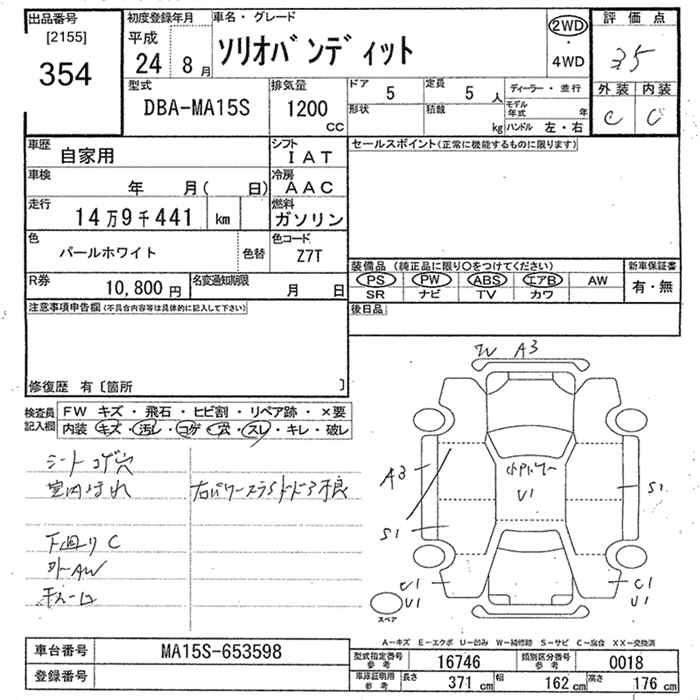 出品番号
[2155]
354
初度登録年月
平成
24 8月
車名・グレード
ソリオバンディット
2WD
・
4WD
評価点
35
外装 内装
C C
型式
DBA-MA15S
排気量
1200
CC
ドア 5
定員 5 人
形状
積載 kg
ディーラー・並行
モデル年式 年
ハンドル 左・右
車歴 自家用
シフト IAT
車検 年 月( 日)
冷房 AAC
走行 14万9千441 km
燃料 ガソリン
色 パールホワイト
色替
色コード Z7T
R券 10,800円
名変通知期限 月 日
セールスポイント(正常に機能するものに限ります)
装備品(純正品に限り○をつけてください)
新車保証書
PS PW ABS エアB AW
有・無
SR ナビ TV カワ
後日品
注意事項申告欄(不具合内容等は具体的に記入して下さい)
修復歴 有〔箇所 〕
検査員記入欄
FW キズ・飛石・ヒビ割・リペア跡・×要
内装 キズ・汚レ・コゲ・穴・スレ・キレ・破レ
シートコゲ穴
室内よごれ
右パワースライドドア不良
下回りC
外AW
W A3
A3
S1
S1
U1
C1
U1
C1
U1
スペア
A-キズ E-エクボ U-凹み W-補修跡 S-サビ C-腐食 XX-交換済
車台番号 MA15S-653598
登録番号
型式指定番号 参考 16746
類別区分番号 参考 0018
車庫証明用 参考 長さ 371 cm 幅 162 cm 高さ 176 cm